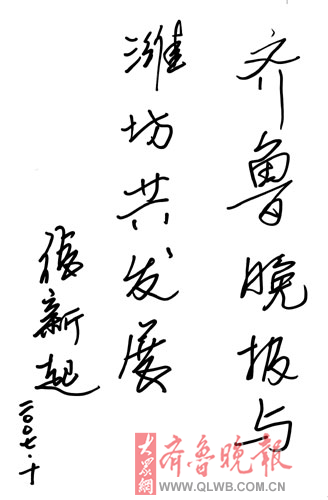 齐鲁晚报与
潍坊共发展
新起
二〇〇七.十
大众网
齐鲁晚报
WWW.QLWB.COM.CN